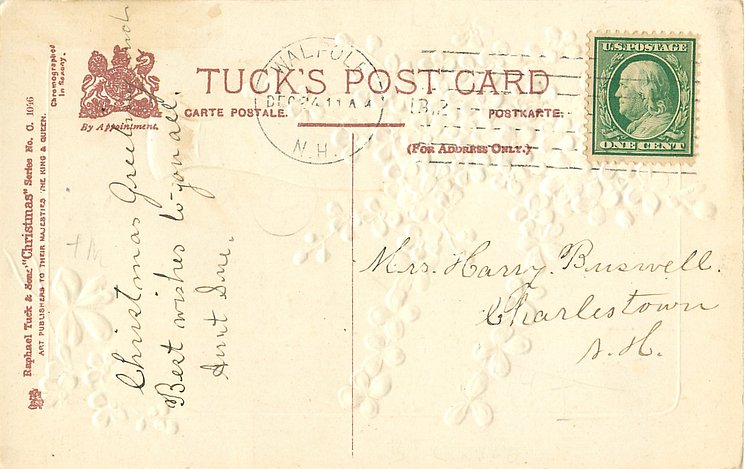 Raphael Tuck & Sons' "Christmas" Series No. C. 1036
ART PUBLISHERS TO THEIR MAJESTIES THE KING & QUEEN.
Chromographed
in Saxony.
By Appointment.
TUCK'S POST CARD
CARTE POSTALE.
POSTKARTE.
(FOR ADDRESS ONLY.)
WALPOLE
DEC 24 11 A
N.H.
U.S. POSTAGE
ONE CENT
Christmas Greetings and
Best wishes to you all.
Aunt Sue.
Mrs. Harry Buswell.
Charlestown
N.H.